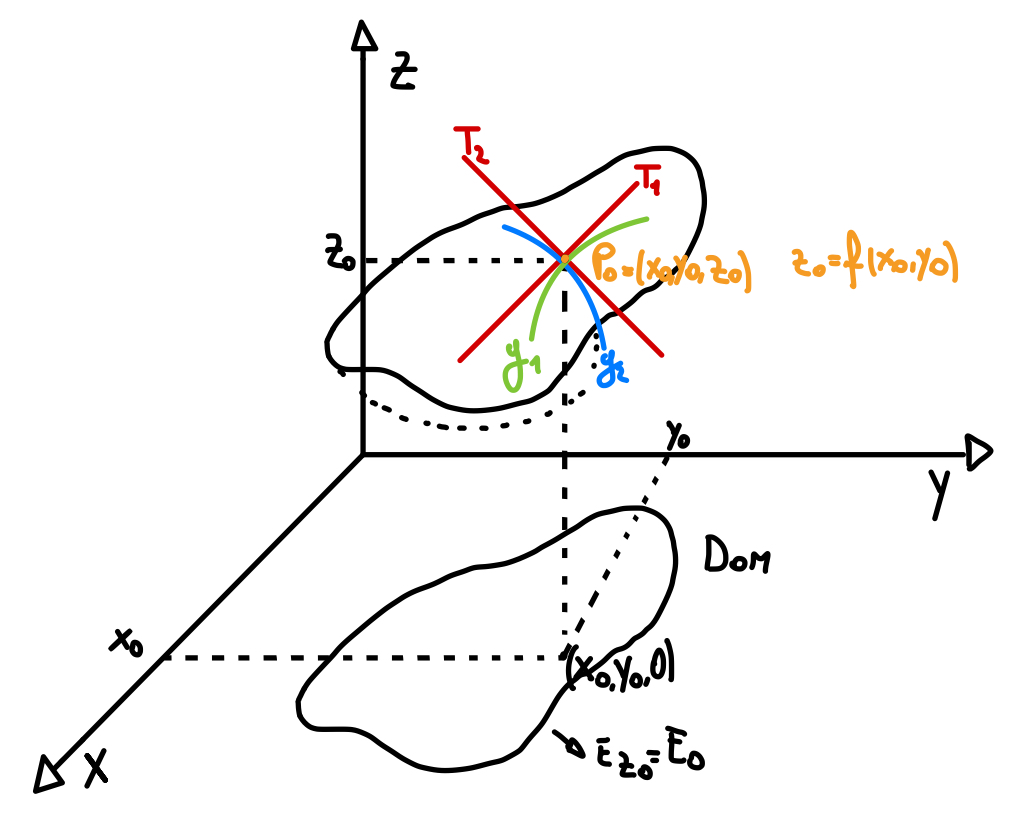 Z
T₂
T₁
z₀
P₀=(x₀,y₀,z₀)
z₀=f(x₀,y₀)
y₁
y₂
y₀
y
Dom
x₀
(x₀,y₀,0)
E̅z₀=E̅₀
x